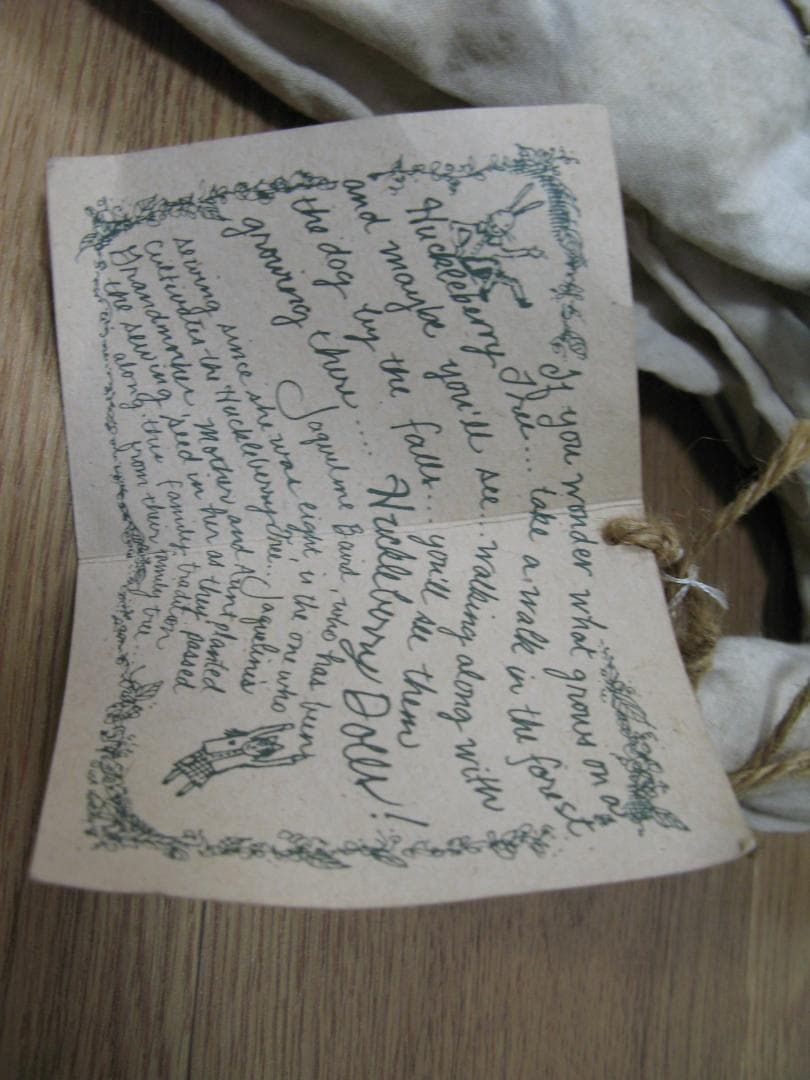 If you wonder what grows on a
Huckleberry Tree... take a walk in the forest
and maybe you'll see... walking along with
the dog by the falls... you'll see them
growing there.... Huckleberry Dolls!
Jaqueline Baird, who has been
sewing since she was eight, is the one who
cultivates the Huckleberry tree... Jaqueline's
Grandmother, Mother, and Aunt planted
the sewing seed in her as they passed
along this family tradition
from their family tree...